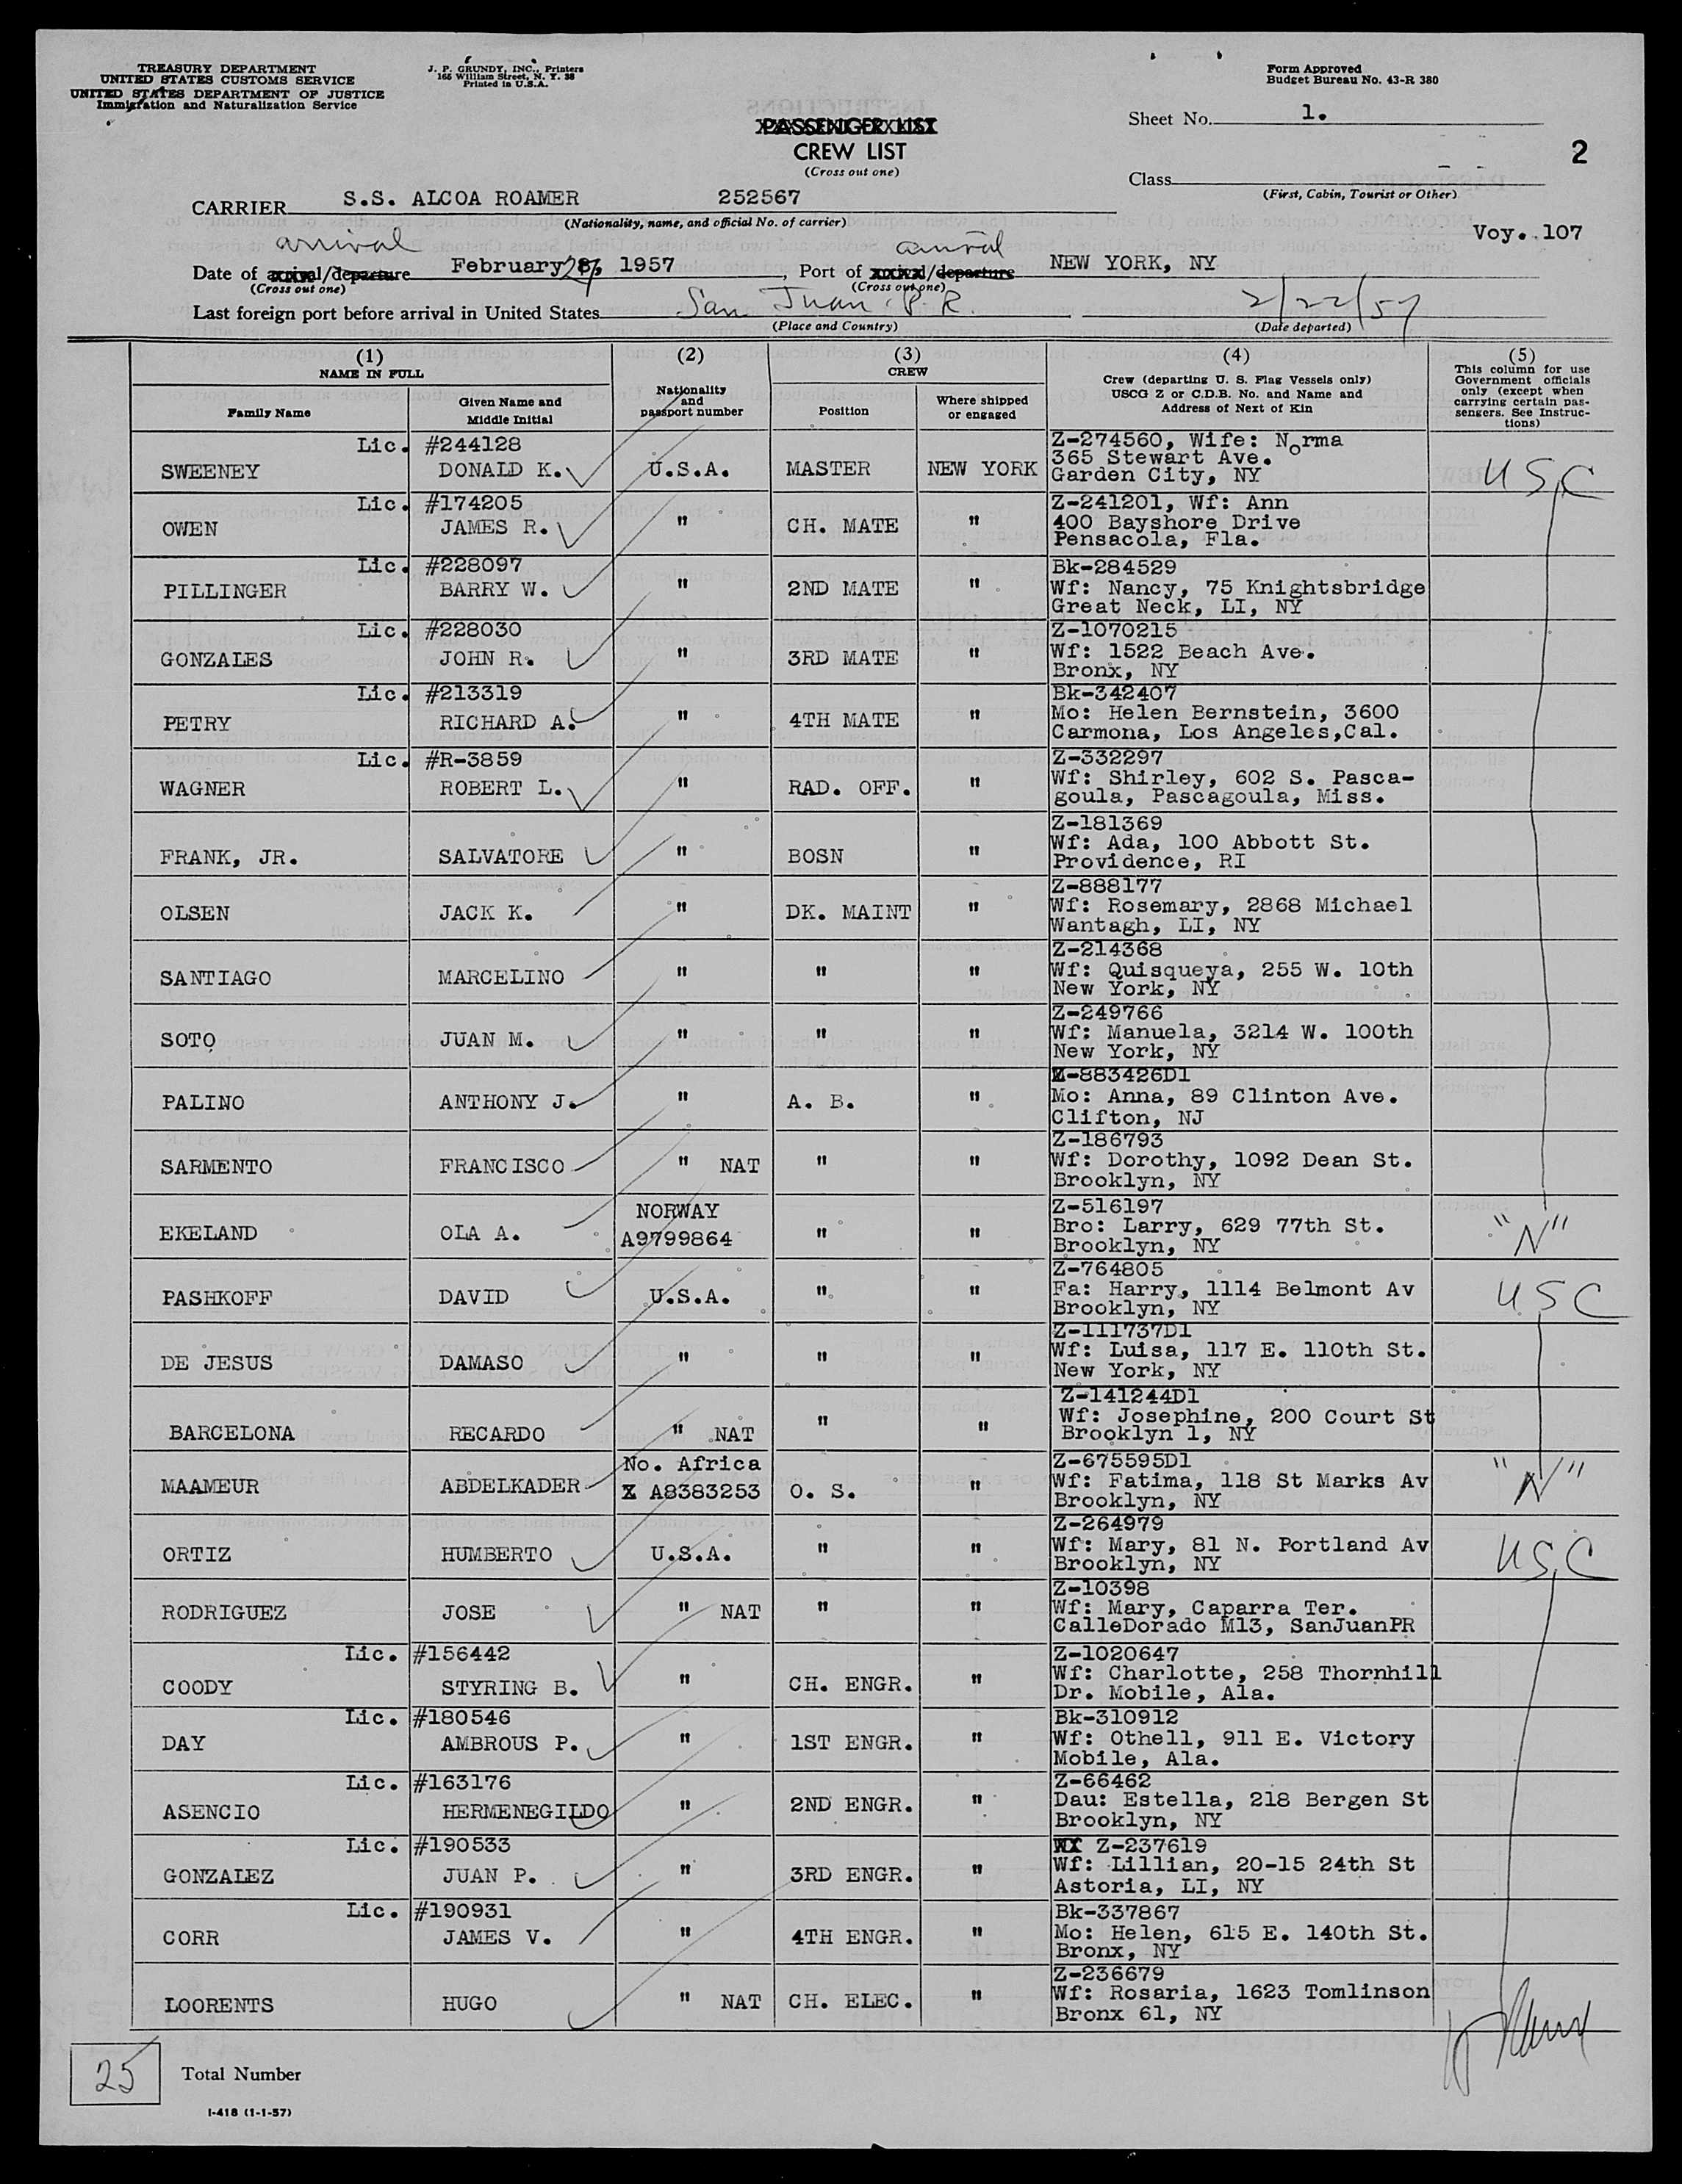 TREASURY DEPARTMENT
UNITED STATES CUSTOMS SERVICE
UNITED STATES DEPARTMENT OF JUSTICE
Immigration and Naturalization Service
J. P. GRUNDY, INC., Printers
166 William Street, N. Y. 38
Printed in U.S.A.
Form Approved
Budget Bureau No. 43-R 380
Sheet No. 1.
2
PASSENGER LIST
CREW LIST
(Cross out one)
Class
(First, Cabin, Tourist or Other)
CARRIER S.S. ALCOA ROAMER 252567
(Nationality, name, and official No. of carrier)
Voy. 107
arrival arrival
Date of arrival/departure February 1957, Port of arrival/departure NEW YORK, NY
(Cross out one) (Cross out one)
Last foreign port before arrival in United States San Juan P.R. 2/22/57
(Place and Country) (Date departed)
(1) (2) (3) (4) (5)
NAME IN FULL
Family Name
Given Name and Middle Initial
Nationality and passport number
CREW
Position
Where shipped or engaged
Crew (departing U. S. Flag Vessels only)
USCG Z or C.D.B. No. and Name and
Address of Next of Kin
This column for use
Government officials
only (except when
carrying certain pas-
sengers. See Instruc-
tions)
Lic. #244128 Z-274560, Wife: Norma
365 Stewart Ave.
SWEENEY DONALD K. U.S.A. MASTER NEW YORK Garden City, NY USC
Lic. #174205 Z-241201, Wf: Ann
OWEN JAMES R. " CH. MATE " 400 Bayshore Drive
Pensacola, Fla.
Lic. #228097 Bk-284529
PILLINGER BARRY W. " 2ND MATE " Wf: Nancy, 75 Knightsbridge
Great Neck, LI, NY
Lic. #228030 Z-1070215
GONZALES JOHN R. " 3RD MATE " Wf: 1522 Beach Ave.
Bronx, NY
Lic. #213319 Bk-342407
PETRY RICHARD A. " 4TH MATE " Mo: Helen Bernstein, 3600
Carmona, Los Angeles,Cal.
Lic. #R-3859 Z-332297
WAGNER ROBERT L. " RAD. OFF. " Wf: Shirley, 602 S. Pasca-
goula, Pascagoula, Miss.
Z-181369
FRANK, JR. SALVATORE " BOSN " Wf: Ada, 100 Abbott St.
Providence, RI
Z-888177
OLSEN JACK K. " DK. MAINT " Wf: Rosemary, 2868 Michael
Wantagh, LI, NY
Z-214368
SANTIAGO MARCELINO " " " Wf: Quisqueya, 255 W. 10th
New York, NY
Z-249766
SOTO JUAN M. " " " Wf: Manuela, 3214 W. 100th
New York, NY
Z-883426D1
PALINO ANTHONY J. " A. B. " Mo: Anna, 89 Clinton Ave.
Clifton, NJ
Z-186793
SARMENTO FRANCISCO " NAT " " Wf: Dorothy, 1092 Dean St.
Brooklyn, NY
NORWAY Z-516197
EKELAND OLA A. A9799864 " " Bro: Larry, 629 77th St. "N"
Brooklyn, NY
Z-764805
PASHKOFF DAVID U.S.A. " " Fa: Harry, 1114 Belmont Av USC
Brooklyn, NY
Z-111737D1
DE JESUS DAMASO " " " Wf: Luisa, 117 E. 110th St.
New York, NY
Z-141244D1
Wf: Josephine, 200 Court St
BARCELONA RECARDO " NAT " " Brooklyn 1, NY
No. Africa Z-675595D1
MAAMEUR ABDELKADER X A8383253 O. S. " Wf: Fatima, 118 St Marks Av "N"
Brooklyn, NY
Z-264979
ORTIZ HUMBERTO U.S.A. " " Wf: Mary, 81 N. Portland Av USC
Brooklyn, NY
Z-10398
RODRIGUEZ JOSE " NAT " " Wf: Mary, Caparra Ter.
CalleDorado M13, SanJuanPR
Lic. #156442 Z-1020647
COODY STYRING B. " CH. ENGR. " Wf: Charlotte, 258 Thornhill
Dr. Mobile, Ala.
Lic. #180546 Bk-310912
DAY AMBROUS P. " 1ST ENGR. " Wf: Othell, 911 E. Victory
Mobile, Ala.
Lic. #163176 Z-66462
ASENCIO HERMENEGILDO " 2ND ENGR. " Dau: Estella, 218 Bergen St
Brooklyn, NY
Lic. #190533 Z-237619
GONZALEZ JUAN P. " 3RD ENGR. " Wf: Lillian, 20-15 24th St
Astoria, LI, NY
Lic. #190931 Bk-337867
CORR JAMES V. " 4TH ENGR. " Mo: Helen, 615 E. 140th St.
Bronx, NY
Z-236679
LOORENTS HUGO " NAT CH. ELEC. " Wf: Rosaria, 1623 Tomlinson
Bronx 61, NY
25 Total Number
I-418 (1-1-57)